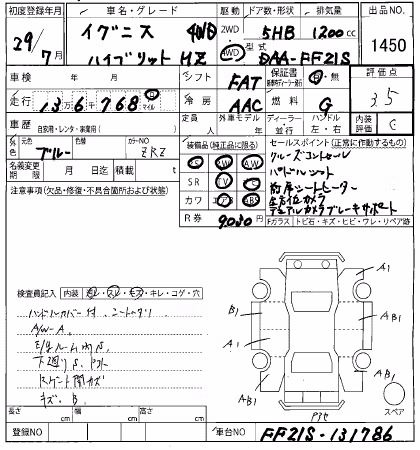 初度登録年月 車名・グレード 駆動 ドア数・形状 排気量 出品NO.
29/7月 イグニス 4WD 2WD 5HB 1200cc 1450
ハイブリット MZ 4WD 型式 DAA-FF21S
車検 年 月 シフト FAT 保証書 有・無 評価点
走行 13万6千768 km マイル 冷房 AAC 燃料 G 3.5
車歴 自家用・レンタ・事業用( ) 定員 人 外車モデル 年 ディーラー 並行 ハンドル 左・右 内装評価 C
外色 元色 ブルー 色替 カラーNO ZRZ
装備品(純正品に限る) セールスポイント(正常に作動するもの)
PS PW AW クルーズコントロール
名義変更期限 月 日迄 積載 t SR TV パドルシフト
注意事項(欠品・修復・不具合箇所および状態) カワ エアB ABS 前席シートヒーター
全方位カメラ
R券 9030円 デュアルカメラブレーキサポート
Fガラス トビ石・キズ・ヒビ・ワレ・リペア跡
検査員記入 内装 汚レ・スレ・キズ・キレ・コゲ・穴
A1
B1
A1
AB1
A/W-A
下廻りS
キズ、B
AB1
AB1
スペア
長さ cm 幅 cm 高さ cm
登録NO 車台NO FF21S-131786